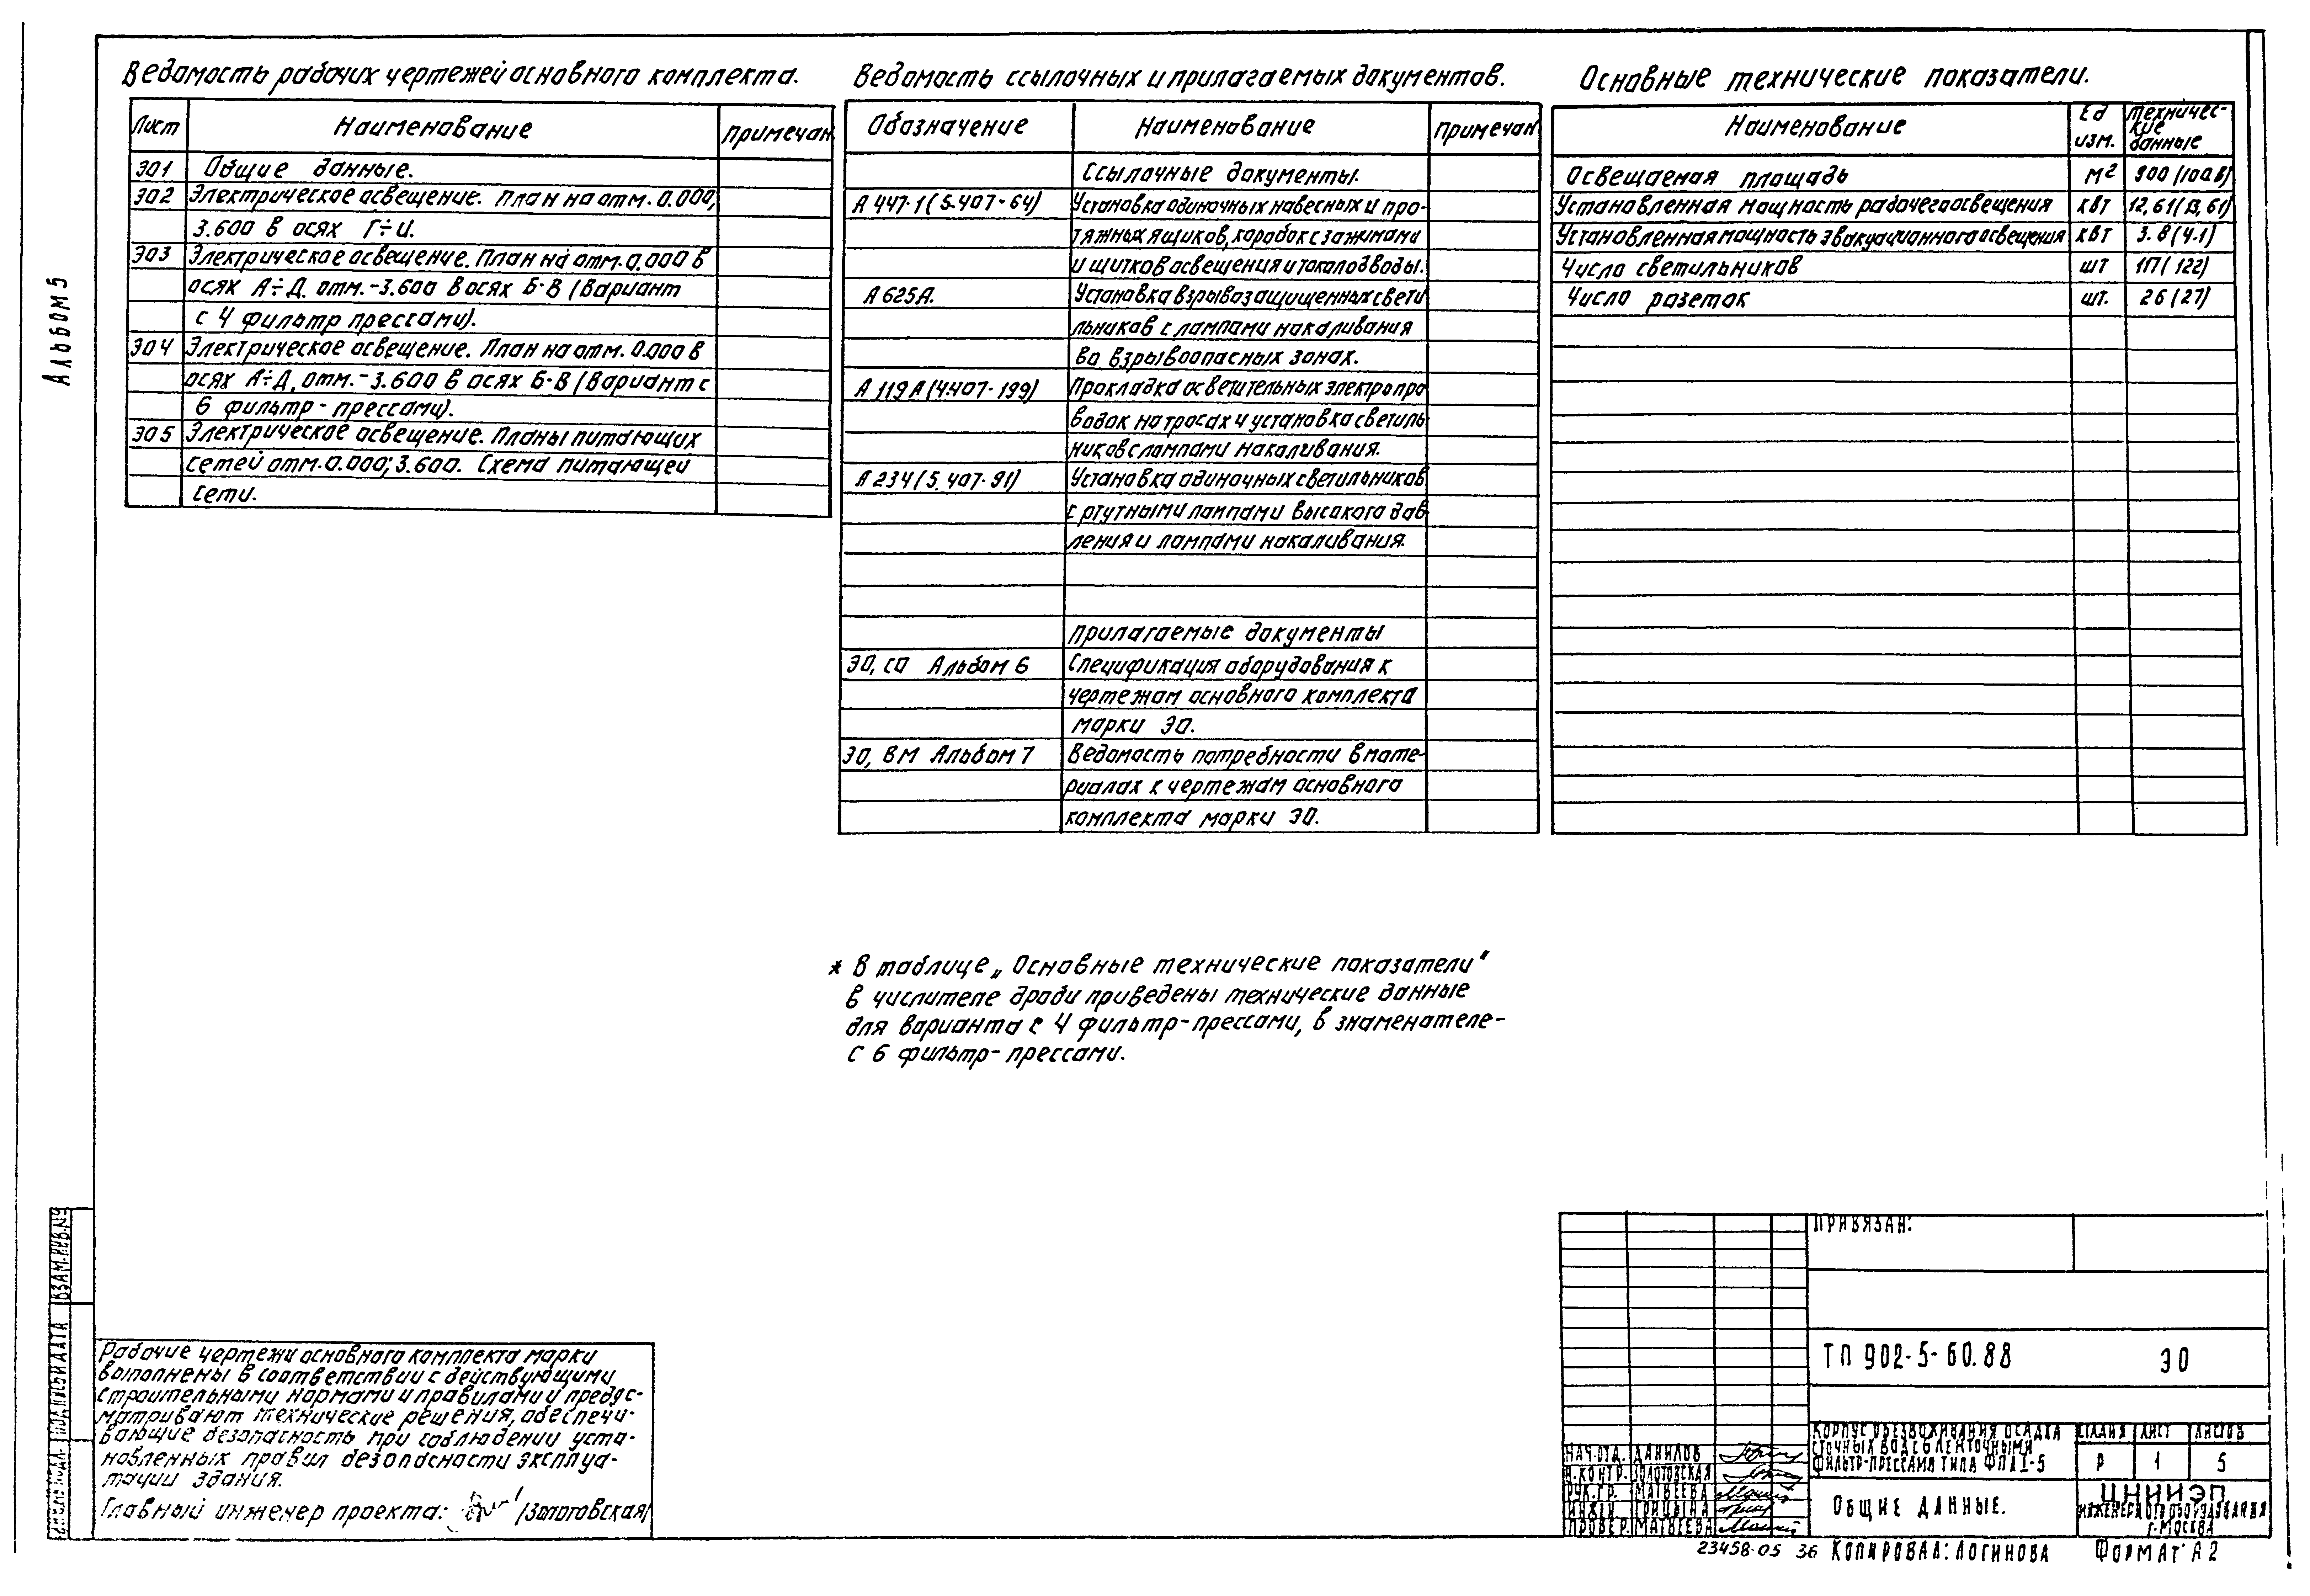 Альбом 5
Ведомость рабочих чертежей основного комплекта.
Лист Наименование Примечан.
ЭО1 Общие данные.
ЭО2 Электрическое освещение. План на отм. 0.000,
3.600 в осях Г÷И.
ЭО3 Электрическое освещение. План на отм. 0.000 в
осях А÷Д. отм.-3.600 в осях Б-В (Вариант
с 4 фильтр прессами).
ЭО4 Электрическое освещение. План на отм. 0.000 в
осях А÷Д, отм.-3.600 в осях Б-В (Вариант с
6 фильтр-прессами).
ЭО5 Электрическое освещение. Планы питающих
сетей отм.0.000; 3.600. Схема питающей
сети.
Ведомость ссылочных и прилагаемых документов.
Обозначение Наименование Примечан.
Ссылочные документы.
А 447-1 (5.407-64) Установка одиночных навесных и про-
тяжных ящиков, коробок с зажимами
и щитков освещения и токоподводы.
А 625А. Установка взрывозащищенных свети
льников с лампами накаливания
во взрывоопасных зонах.
А 119 А (4.407-199) Прокладка осветительных электропро
водок на тросах и установка светиль-
ников с лампами накаливания.
А 234 (5.407-91) Установка одиночных светильников
с ртутными лампами высокого дав-
ления и лампами накаливания.
Прилагаемые документы
ЭО, СО Альбом 6 Спецификация оборудования к
чертежам основного комплекта
марки ЭО.
ЭО, ВМ Альбом 7 Ведомость потребности в мате-
риалах к чертежам основного
комплекта марки ЭО.
Основные технические показатели.
Наименование Ед изм. Техничес-кие данные
Освещаемая площадь м² 900
Установленная мощность рабочего освещения кВт 12,61 (13,61)
Установленная мощность эвакуационного освещения кВт 3.8 (4.1)
Число светильников шт 117 (122)
Число розеток шт. 26 (27)
* В таблице „Основные технические показатели"
в числителе дроби приведены технические данные
для варианта с 4 фильтр-прессами, в знаменателе-
с 6 фильтр-прессами.
Взам.инв.№
Подпись и дата
Инв.№ подл.
Рабочие чертежи основного комплекта марки
выполнены в соответствии с действующими
строительными нормами и правилами и предус-
матривают технические решения, обеспечи-
вающие безопасность при соблюдении уста-
новленных правил безопасности эксплуа-
тации здания.
Главный инженер проекта: /Золотовская/
Привязан:
ТП 902-5-60.88 ЭО
Корпус обезвоживания осадка
сточных вод с 6 ленточными
фильтр-прессами типа
Стадия Лист Листов
Р 1 5
Нач.отд. Данилов
Н.контр. Золотовская
Рук.гр. Матвеева
Инжен.
Провер. Матвеева
Общие данные.
ЦНИИЭП
инженерного оборудования
г. Москва
23458-05 36 Копировал: Логинова Формат А2